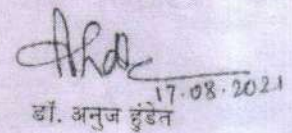 17.08.2021
डॉ. अनुज हुंडेत